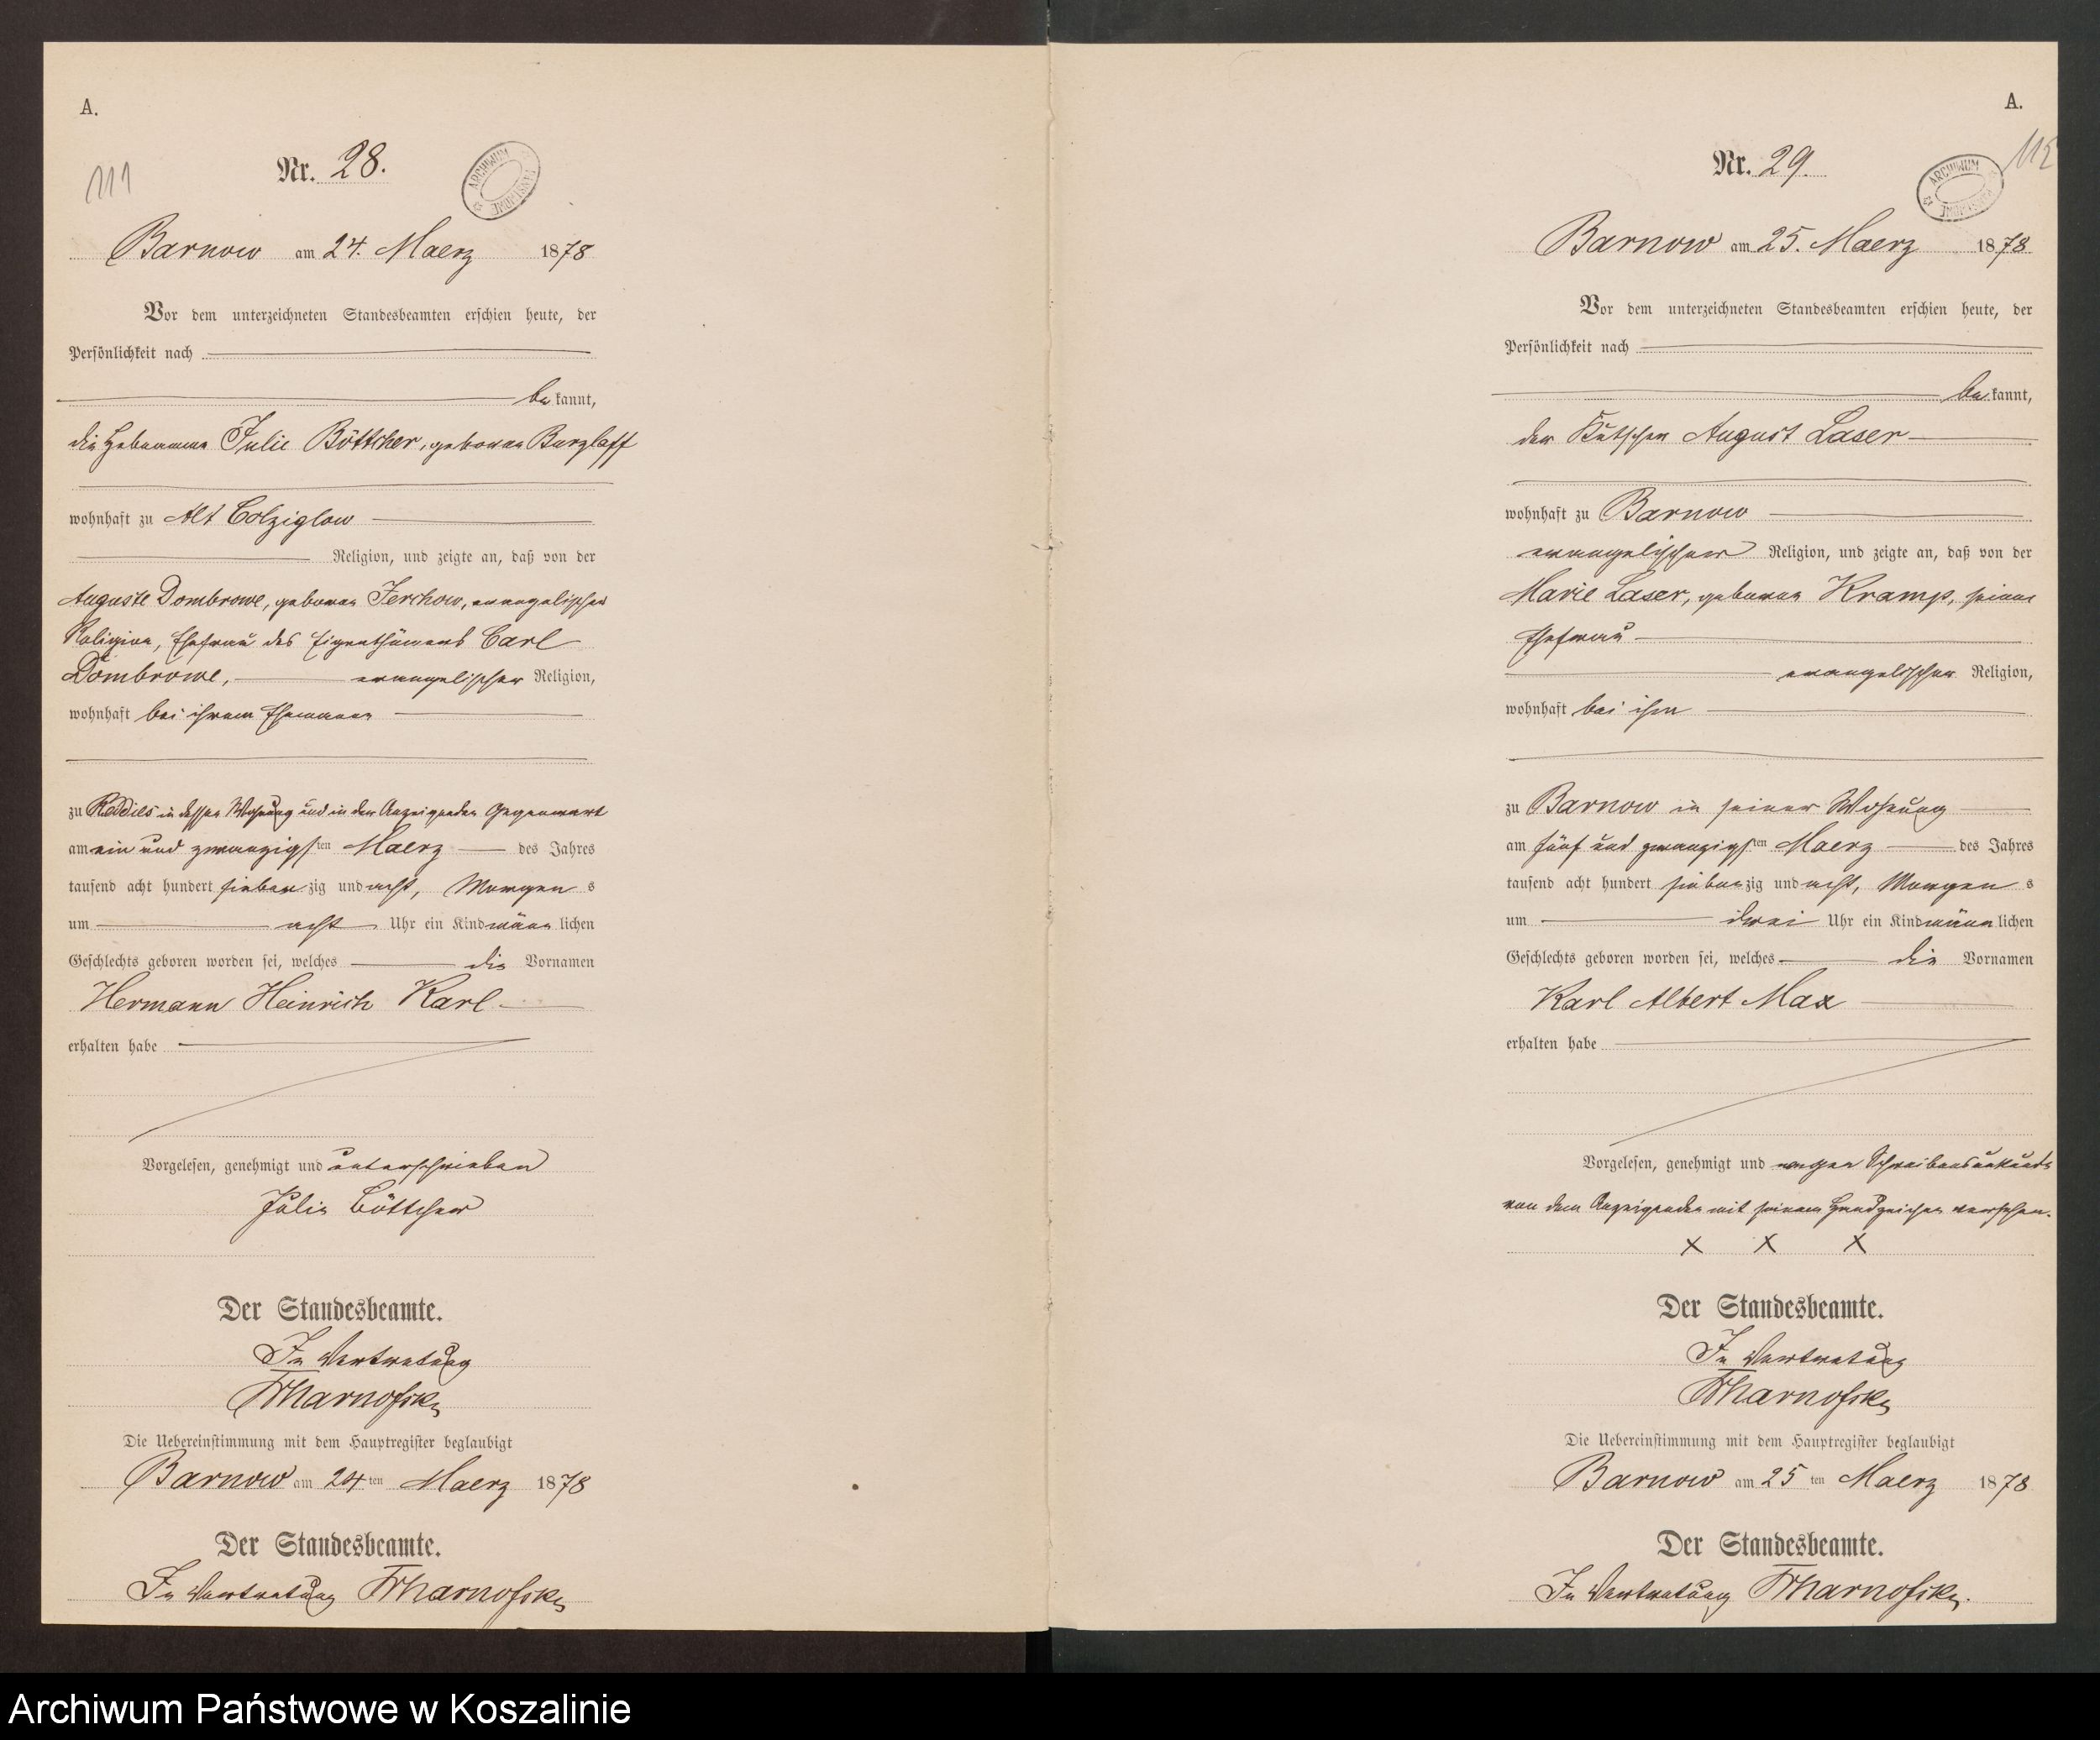 A.
111
Nr. 28.
ARCHIWUM
Barnow am 24. Maerz 1878
Vor dem unterzeichneten Standesbeamten erschien heute, der
Persönlichkeit nach
bekannt,
die Hebamme Julie Böttcher, geborne Burzlaff
wohnhaft zu Alt Colziglow
Religion, und zeigte an, daß von der
Auguste Dombrowe, geborne Jerchow, evangelischer
Religion, Ehefrau des Eigenthümers Carl
Dombrowe, evangelischer Religion,
wohnhaft bei ihrem Ehemanne
zu Reddies in dessen Wohnung und in der Anzeigenden Gegenwart
am ein und zwanzigsten Maerz des Jahres
tausend acht hundert siebenzig und acht, Morgens
um acht Uhr ein Kind männlichen
Geschlechts geboren worden sei, welches die Vornamen
Hermann Heinrich Karl
erhalten habe
Vorgelesen, genehmigt und unterschrieben
Julie Böttcher
Der Standesbeamte.
In Vertretung
Die Uebereinstimmung mit dem Hauptregister beglaubigt
Barnow am 24ten Maerz 1878
Der Standesbeamte.
In Vertretung
A.
Nr. 29.
ARCHIWUM
Barnow am 25. Maerz 1878
Vor dem unterzeichneten Standesbeamten erschien heute, der
Persönlichkeit nach
bekannt,
der Kutscher August Laser
wohnhaft zu Barnow
evangelischer Religion, und zeigte an, daß von der
Marie Laser, geborne Kramp, seiner
Ehefrau
evangelischer Religion,
wohnhaft bei ihm
zu Barnow in seiner Wohnung
am fünf und zwanzigsten Maerz des Jahres
tausend acht hundert siebenzig und acht, Morgens
um drei Uhr ein Kind männlichen
Geschlechts geboren worden sei, welches die Vornamen
Karl Albert Max
erhalten habe
Vorgelesen, genehmigt und wegen Schreibensunkunde
von dem Anzeigenden mit seinem Handzeichen versehen.
X X X
Der Standesbeamte.
In Vertretung
Die Uebereinstimmung mit dem Hauptregister beglaubigt
Barnow am 25ten Maerz 1878
Der Standesbeamte.
In Vertretung
Archiwum Państwowe w Koszalinie